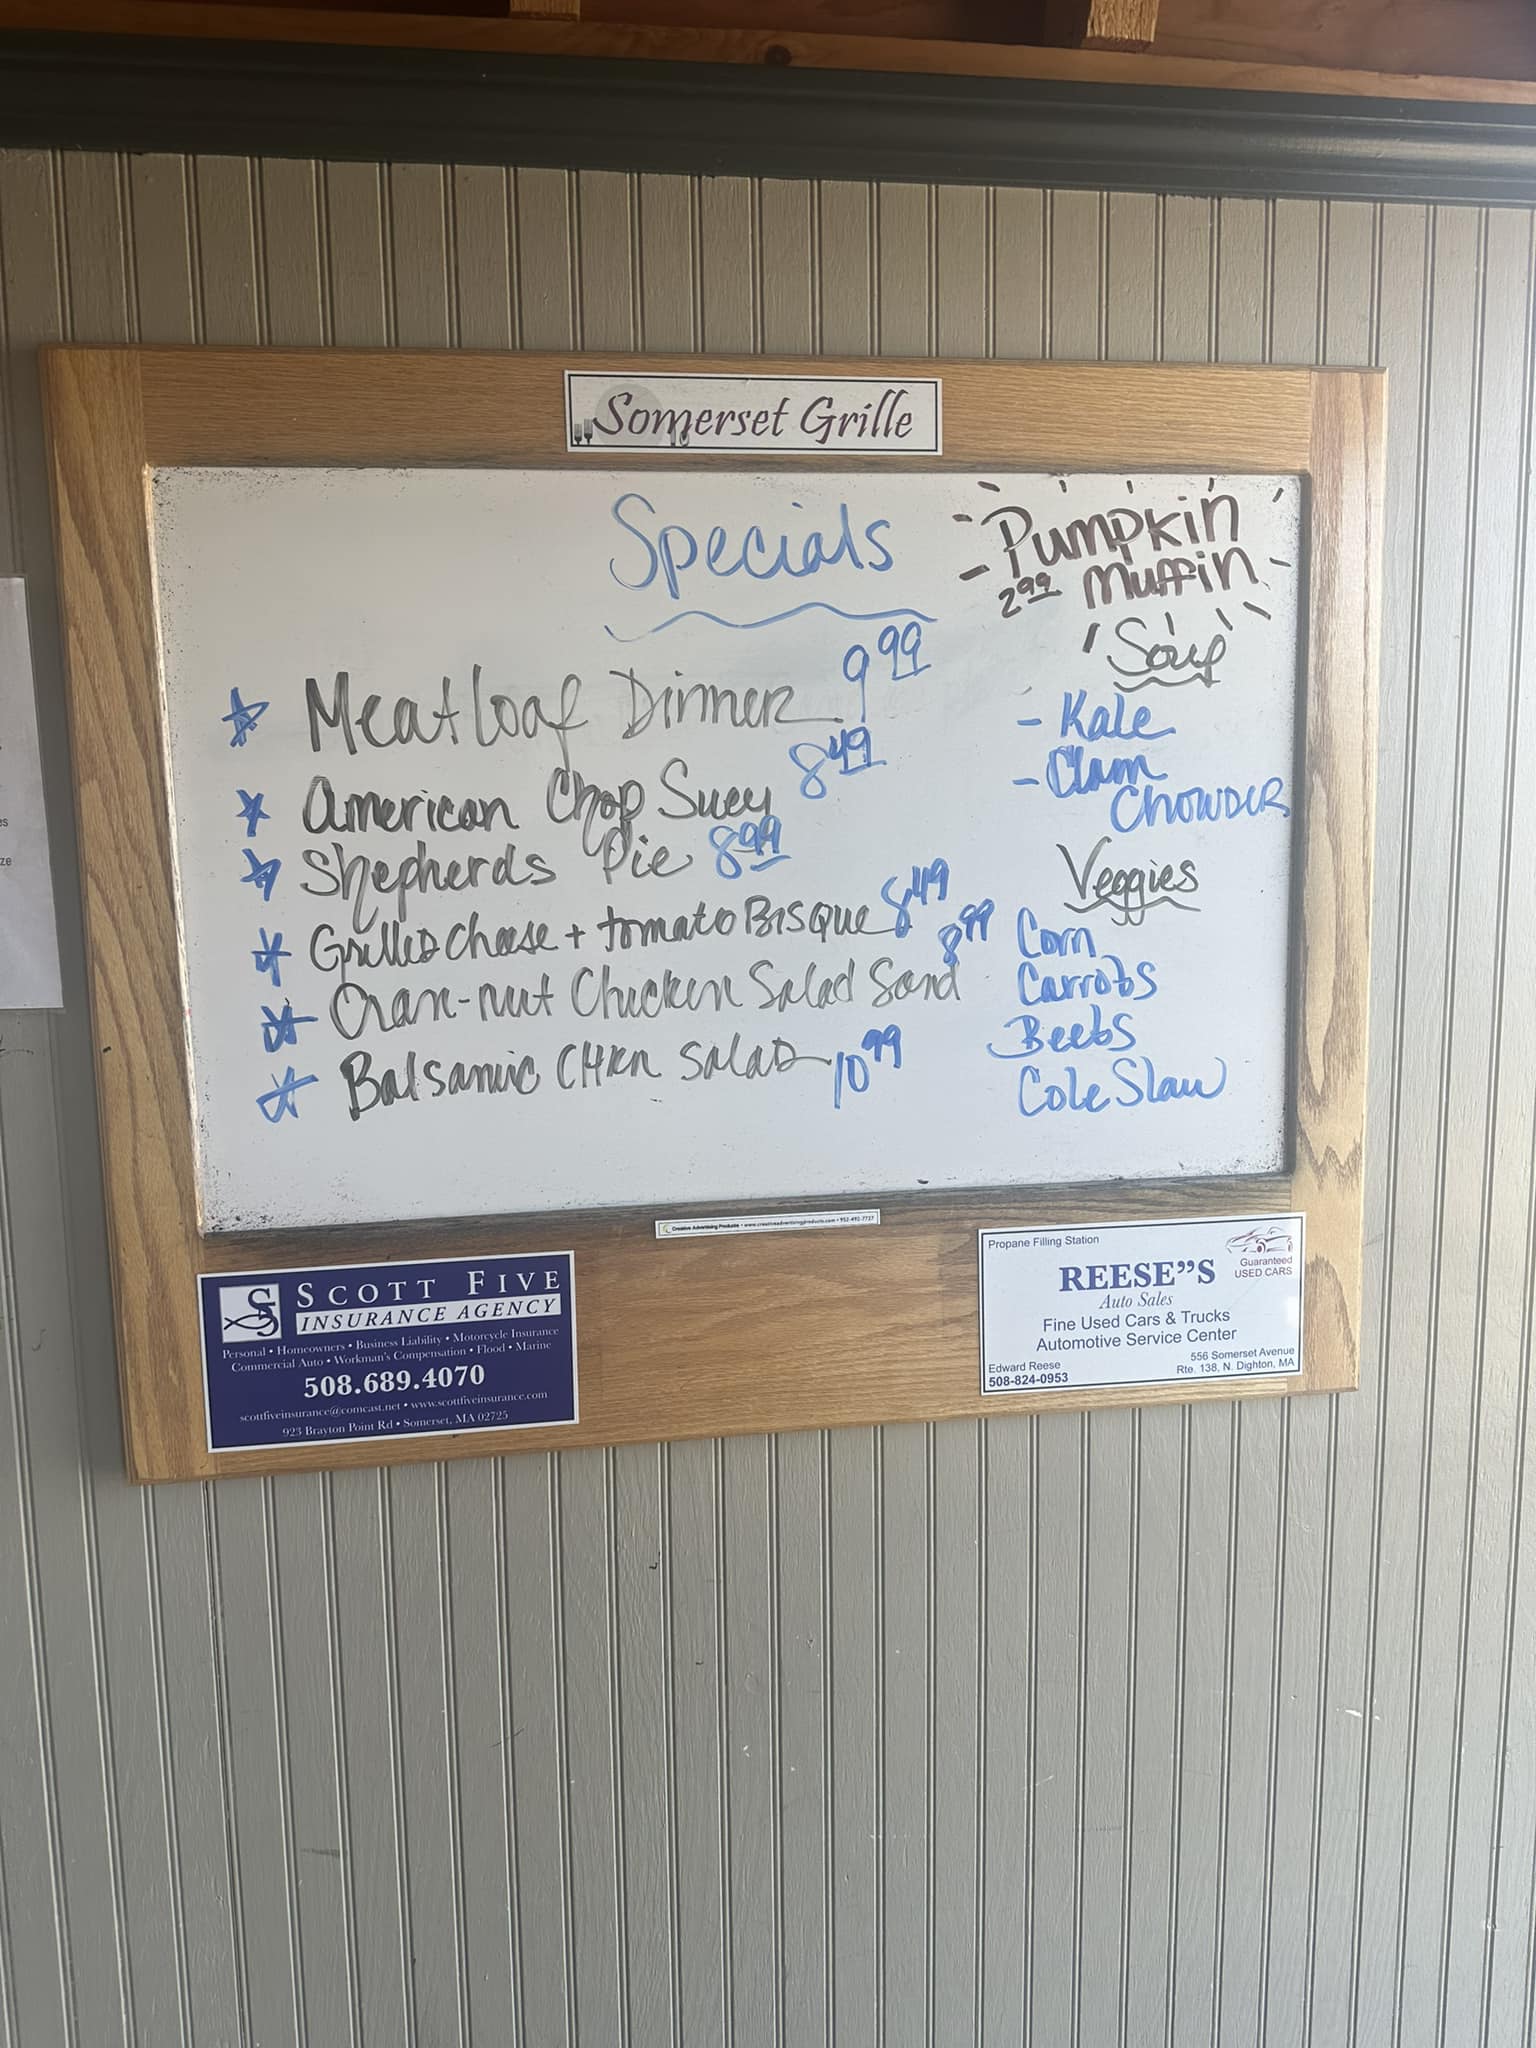 Somerset Grille
Specials
Meatloaf Dinner 9.99
American Chop Suey 8.49
Shepherds Pie 8.99
Grilled Cheese + tomato Bisque 8.49
Cran-nut Chicken Salad Sand 8.99
Balsamic CHKN Salad 10.99
Pumpkin
2.99 Muffin
Soup
- Kale
- Clam
CHOWDER
Veggies
Corn
Carrots
Beets
Cole Slaw
Creative Advertising Products • www.creativeadvertisingproducts.com • 952-492-7727
SCOTT FIVE
INSURANCE AGENCY
Personal • Homeowners • Business Liability • Motorcycle Insurance
Commercial Auto • Workman's Compensation • Flood • Marine
508.689.4070
scottfiveinsurance@comcast.net • www.scottfiveinsurance.com
923 Brayton Point Rd • Somerset, MA 02725
Propane Filling Station
Guaranteed
USED CARS
REESE"S
Auto Sales
Fine Used Cars & Trucks
Automotive Service Center
Edward Reese
508-824-0953
556 Somerset Avenue
Rte. 138, N. Dighton, MA